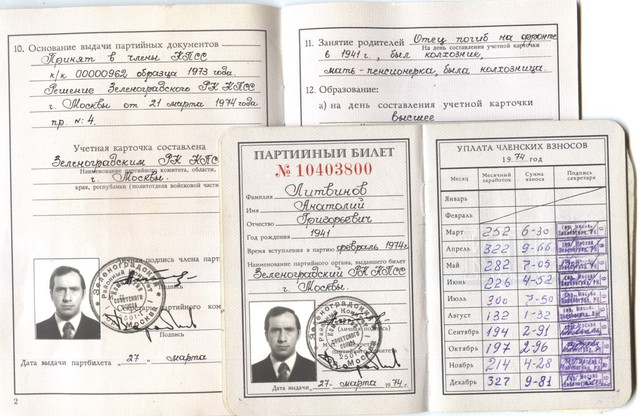 10. Основание выдачи партийных документов
Принят в члены КПСС
к/к 00000962, образца 1973 года.
Решение Зеленоградского РК КПСС
г. Москвы от 21 марта 1974 года
пр. № 4.
Учетная карточка составлена
Зеленоградским РК КПСС
Наименование партийного комитета, области,
г. Москвы.
края, республики (политотдела войсковой части
подпись члена парт
партийного ком
Подпись
Дата выдачи партбилета 27 марта
2
11. Занятие родителей Отец погиб на фронте
На день составления учетной карточки
в 1941 г., был колхозник,
мать-пенсионерка, была колхозница.
12. Образование:
а) на день составления учетной карточки
Высшее
ПАРТИЙНЫЙ БИЛЕТ
№ 10403800
Фамилия Литвинов
Имя Анатолий
Отчество Григорьевич
Год рождения 1941
Время вступления в партию февраль 1974г.
Наименование партийного органа, выдавшего билет
Зеленоградский РК КПСС
г. Москвы.
(личная подпись)
Дата выдачи 27 марта 1974 г.
УПЛАТА ЧЛЕНСКИХ ВЗНОСОВ
1974 год
Месяц Месячный заработок Сумма взноса Подпись секретаря
Январь
Февраль
Март 252 6-30
Апрель 322 9-66
Май 282 7-05
Июнь 226 4-52
Июль 300 7-50
Август 132 1-32
Сентябрь 194 2-91
Октябрь 197 2-96
Ноябрь 214 4-28
Декабрь 327 9-81